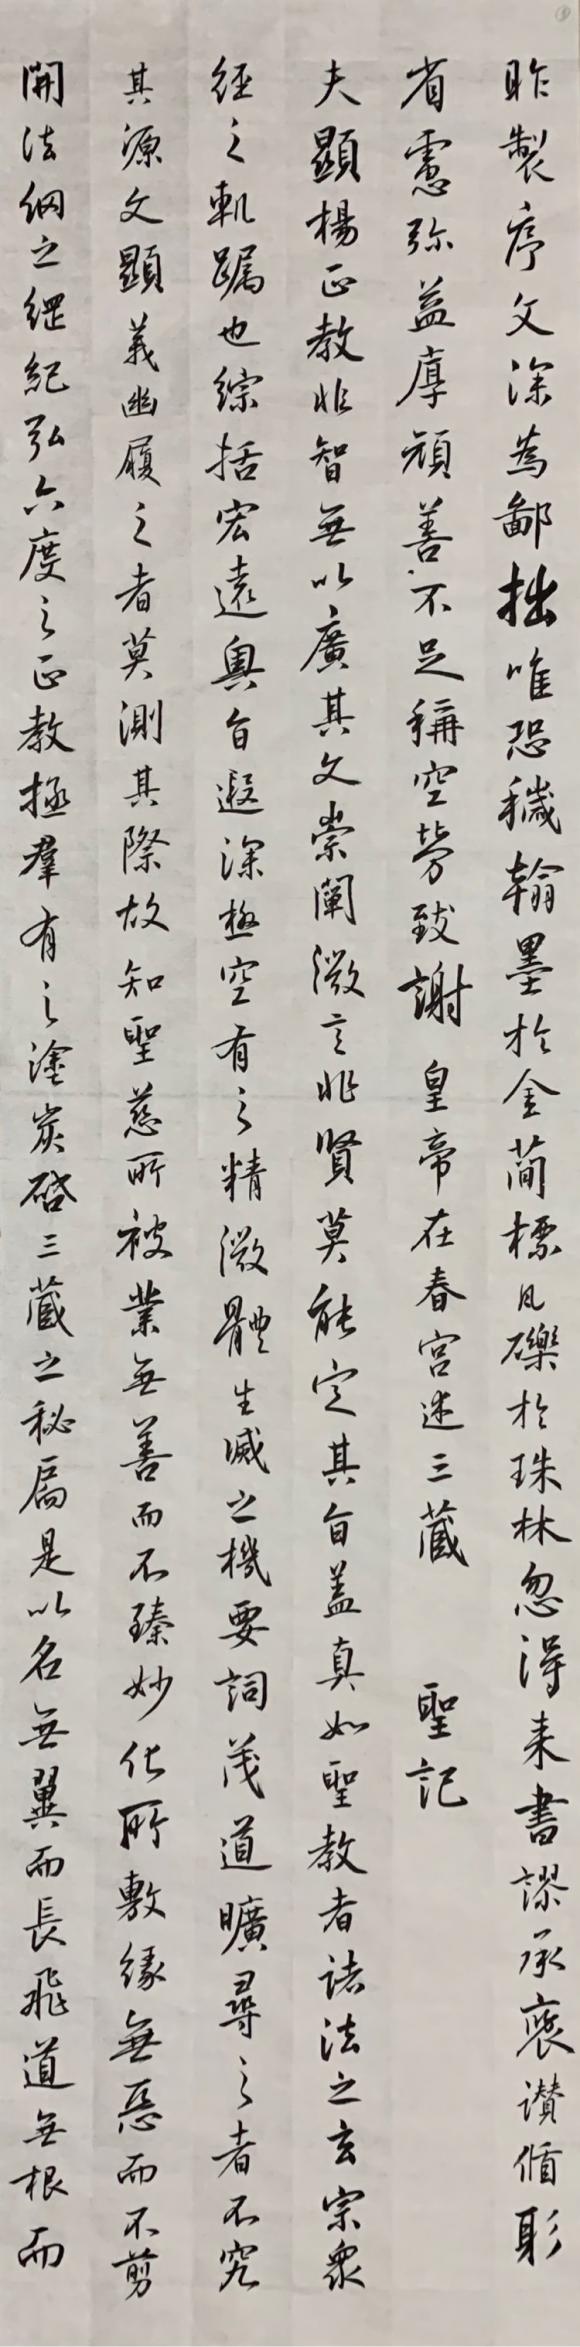 昨製序文深為鄙拙唯恐穢翰墨於金蕳標凡礫於珠林忽得来書謬承褒讃循躬
省慮弥益厚顔善不足稱空勞致謝 皇帝在春宮述三藏 聖記
夫顯楊正教非智無以廣其文崇闡微言非賢莫能定其旨盖真如聖教者諸法之玄宗衆
經之軌躅也綜括宏遠奥旨遐深極空有之精微體生滅之機要詞茂道曠尋之者不究
其源文顯義幽履之者莫測其際故知聖慈所被業無善而不臻妙化所敷緣無惡而不剪
開法網之綱紀弘六度之正教拯群有之塗炭啓三藏之秘扃是以名無翼而長飛道無根而